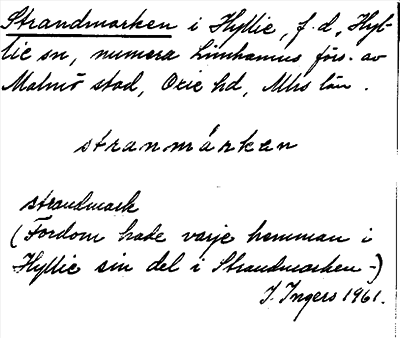 Strandmarken i Hyllie, f.d. Hyl-
lie sn, numera Limhamns förs. av
Malmö stad, Oxie hd, Mhs län.
stranmárken
strandmark
(Fordom hade varje hemman i
Hyllie sin del i Strandmarken-)
I. Ingers 1961.